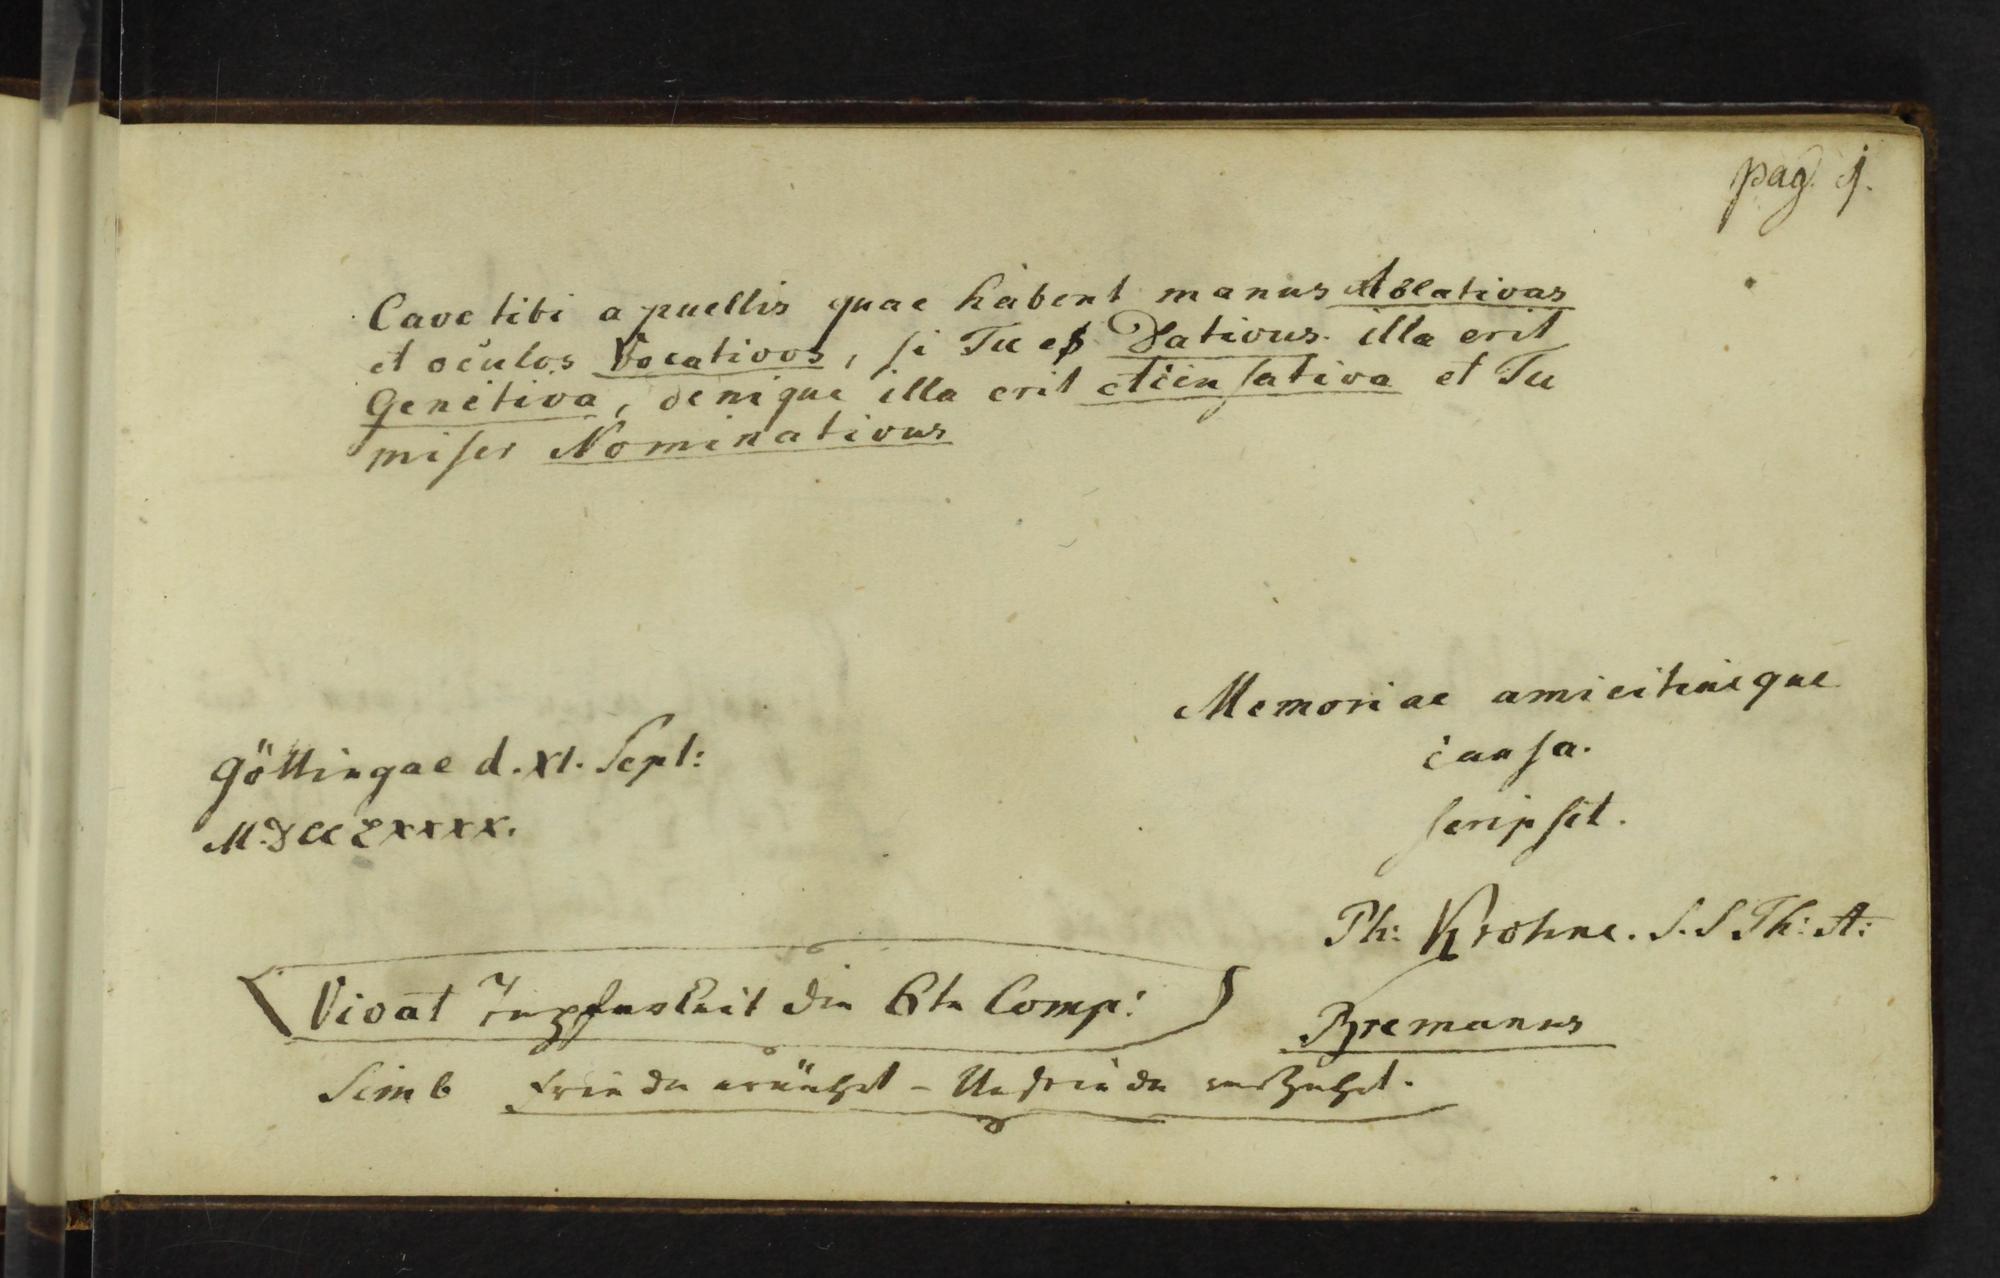 pag. 1.
Cave tibi a puellis quae habent manus Ablativas
et oculos Vocativos, si Tu es Dativus. illa erit
Genetiva, denique illa erit Accusativa et Tu
miser Nominativus
Memoriae amicitiaeque
causa.
scripsit.
Göttingae d. XI. Sept:
M.DCCLXXXX.
Ph: Krohne. S. S Th: St:
Bremanus
Vivat die 6te Comp:
Simb Friede ernährt – Unfriede verzehrt.